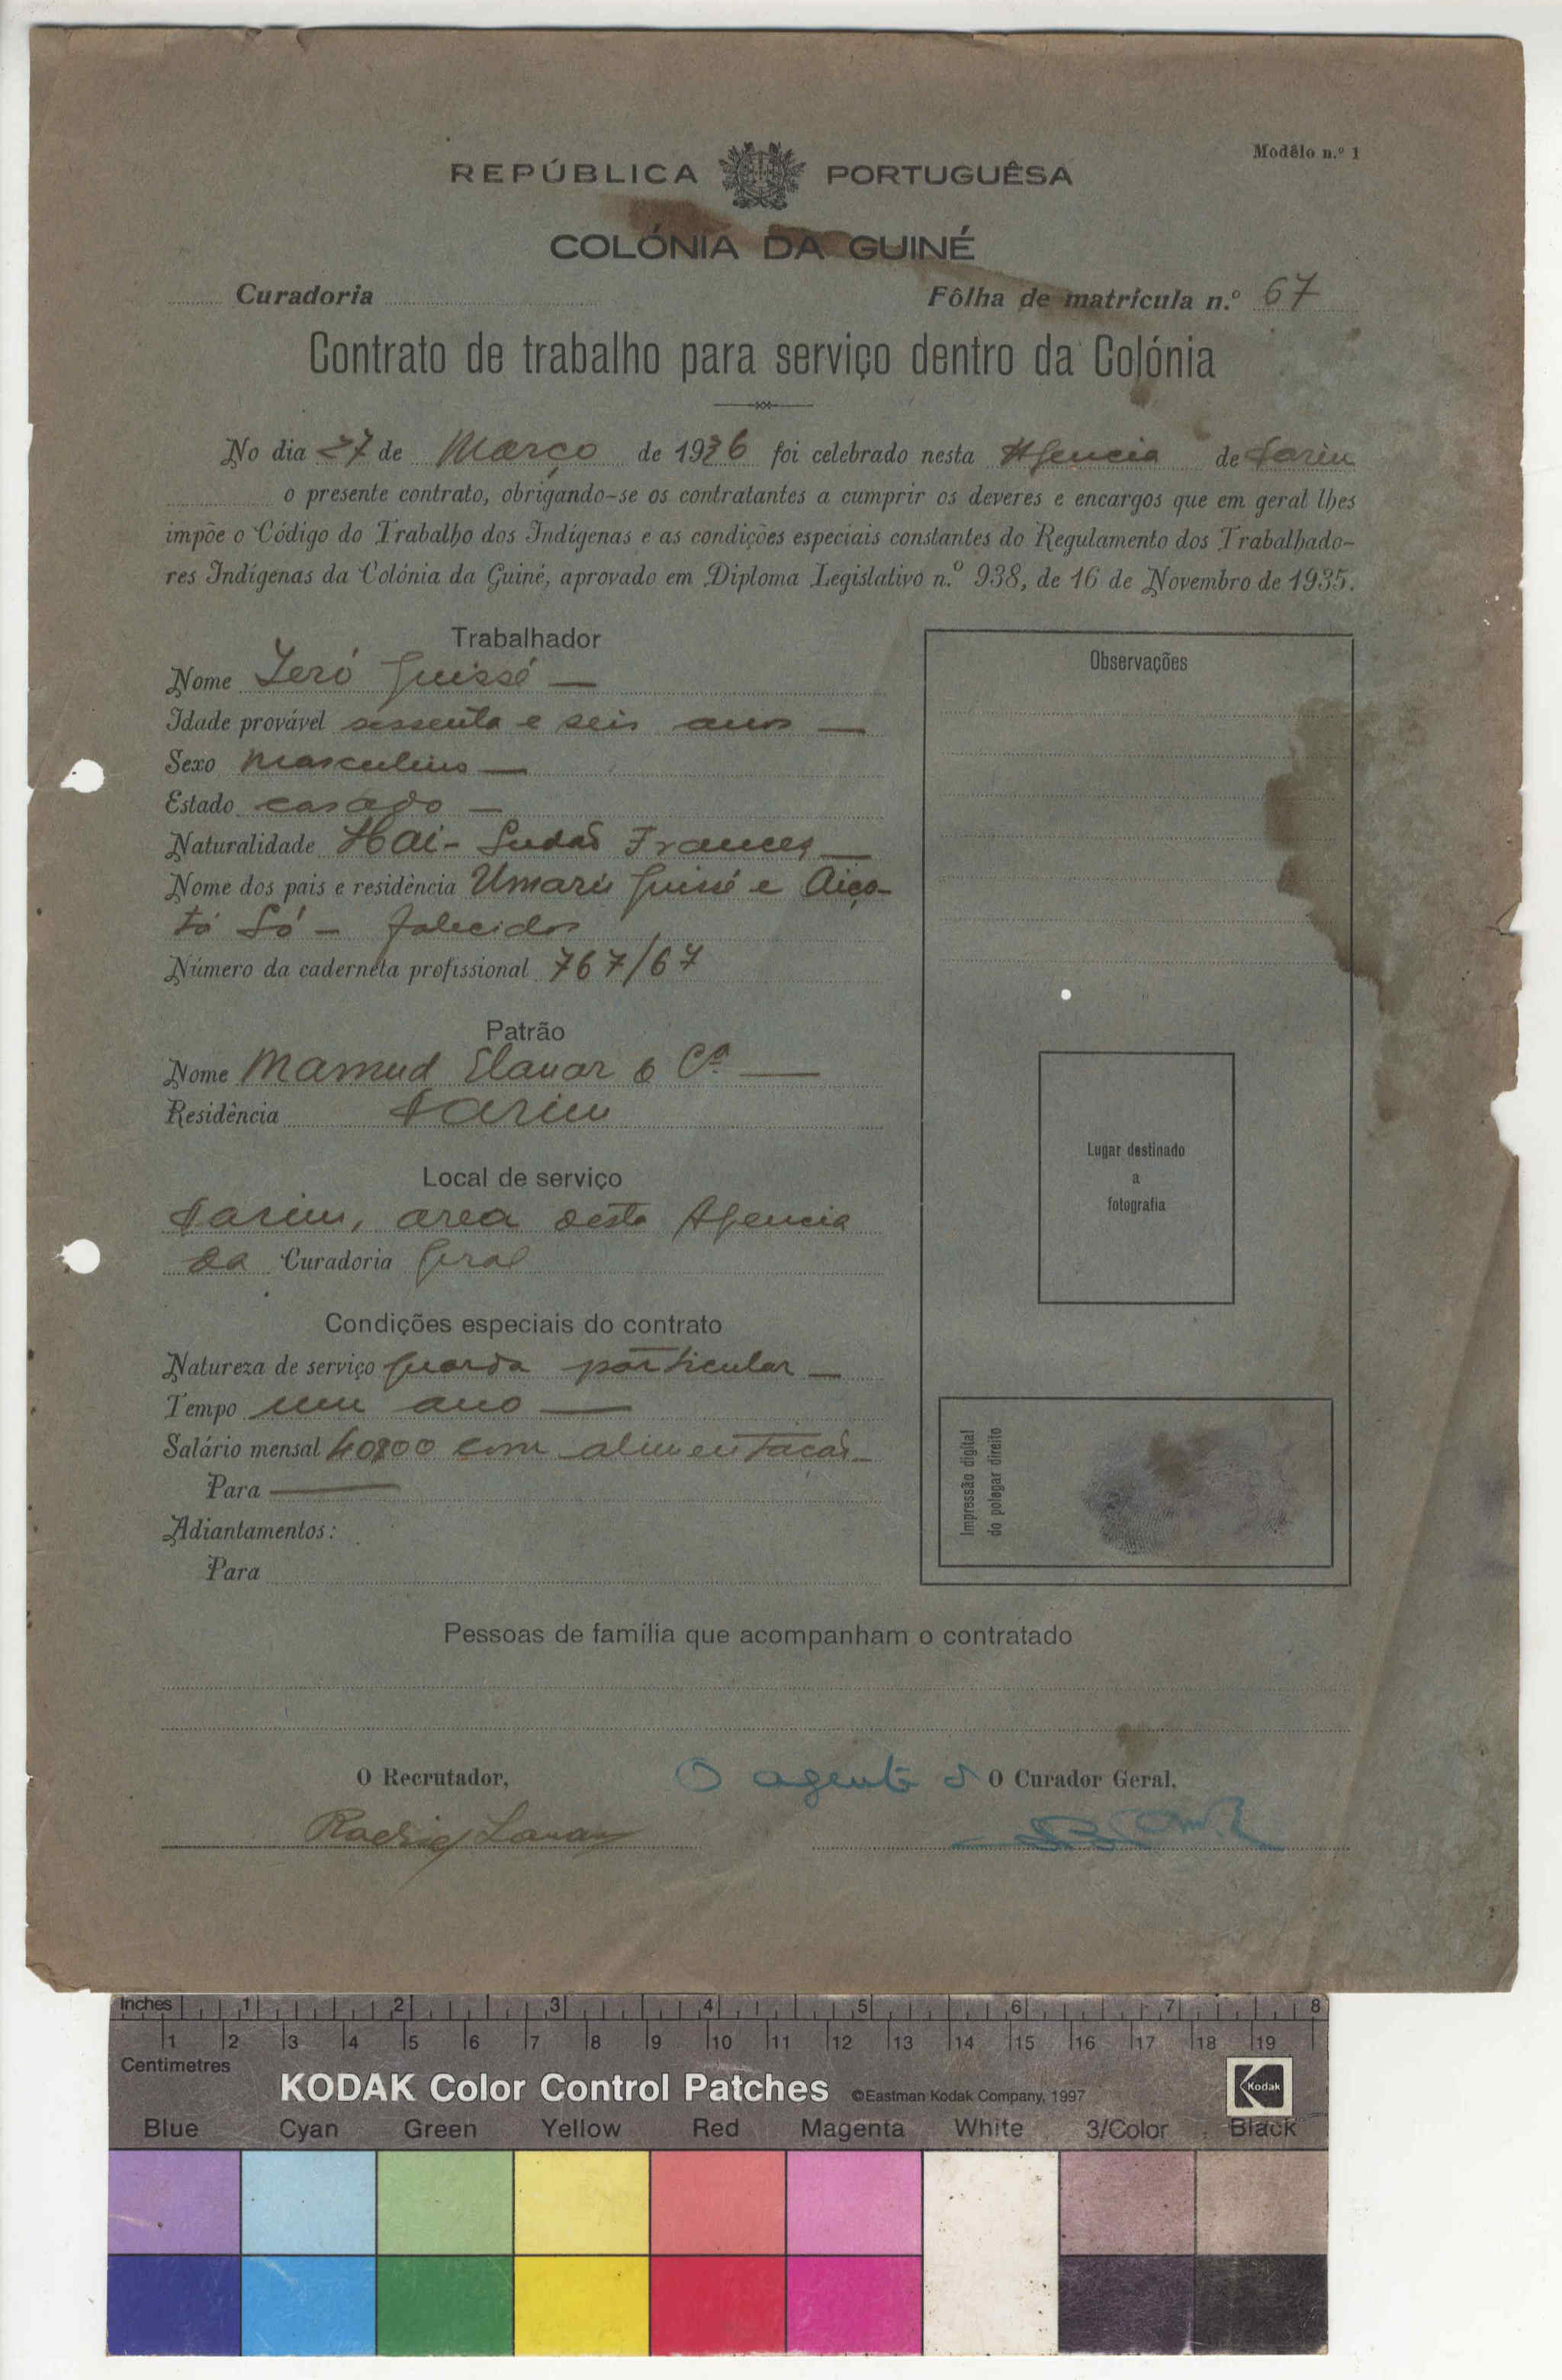 Modêlo n.º 1
REPÚBLICA PORTUGUÊSA
COLÓNIA DA GUINÉ
Curadoria
Fôlha de matrícula n.º 67
Contrato de trabalho para serviço dentro da Colónia
No dia 27 de Março de 1936 foi celebrado nesta Agencia de Farim
o presente contrato, obrigando-se os contratantes a cumprir os deveres e encargos que em geral lhes
impõe o Código do Trabalho dos Indígenas e as condições especiais constantes do Regulamento dos Trabalhado-
res Indígenas da Colónia da Guiné, aprovado em Diploma Legislativo n.º 938, de 16 de Novembro de 1935.
Trabalhador
Nome Ieró Guissé —
Idade provável sessenta e seis anos —
Sexo Masculino —
Estado casado —
Naturalidade Hai - Sudão Frances —
Nome dos pais e residência Umarú Guissé e Aiça-
tá Só - falecidos
Número da caderneta profissional 767/67
Patrão
Nome Mamud Elauar & Cª —
Residência Farim
Local de serviço
Farim, area desta Agencia
da Curadoria Geral
Condições especiais do contrato
Natureza de serviço Guarda particular —
Tempo um ano —
Salário mensal 40$00 com alimentação
Para —
Adiantamentos:
Para
Observações
Lugar destinado
a
fotografia
Impressão digital
do polegar direito
Pessoas de família que acompanham o contratado
O Recrutador,
O agente d O Curador Geral,
Inches 1 2 3 4 5 6 7 8
1 2 3 4 5 6 7 8 9 10 11 12 13 14 15 16 17 18 19
Centimetres
KODAK Color Control Patches ©Eastman Kodak Company, 1997 Kodak
Blue Cyan Green Yellow Red Magenta White 3/Color Black